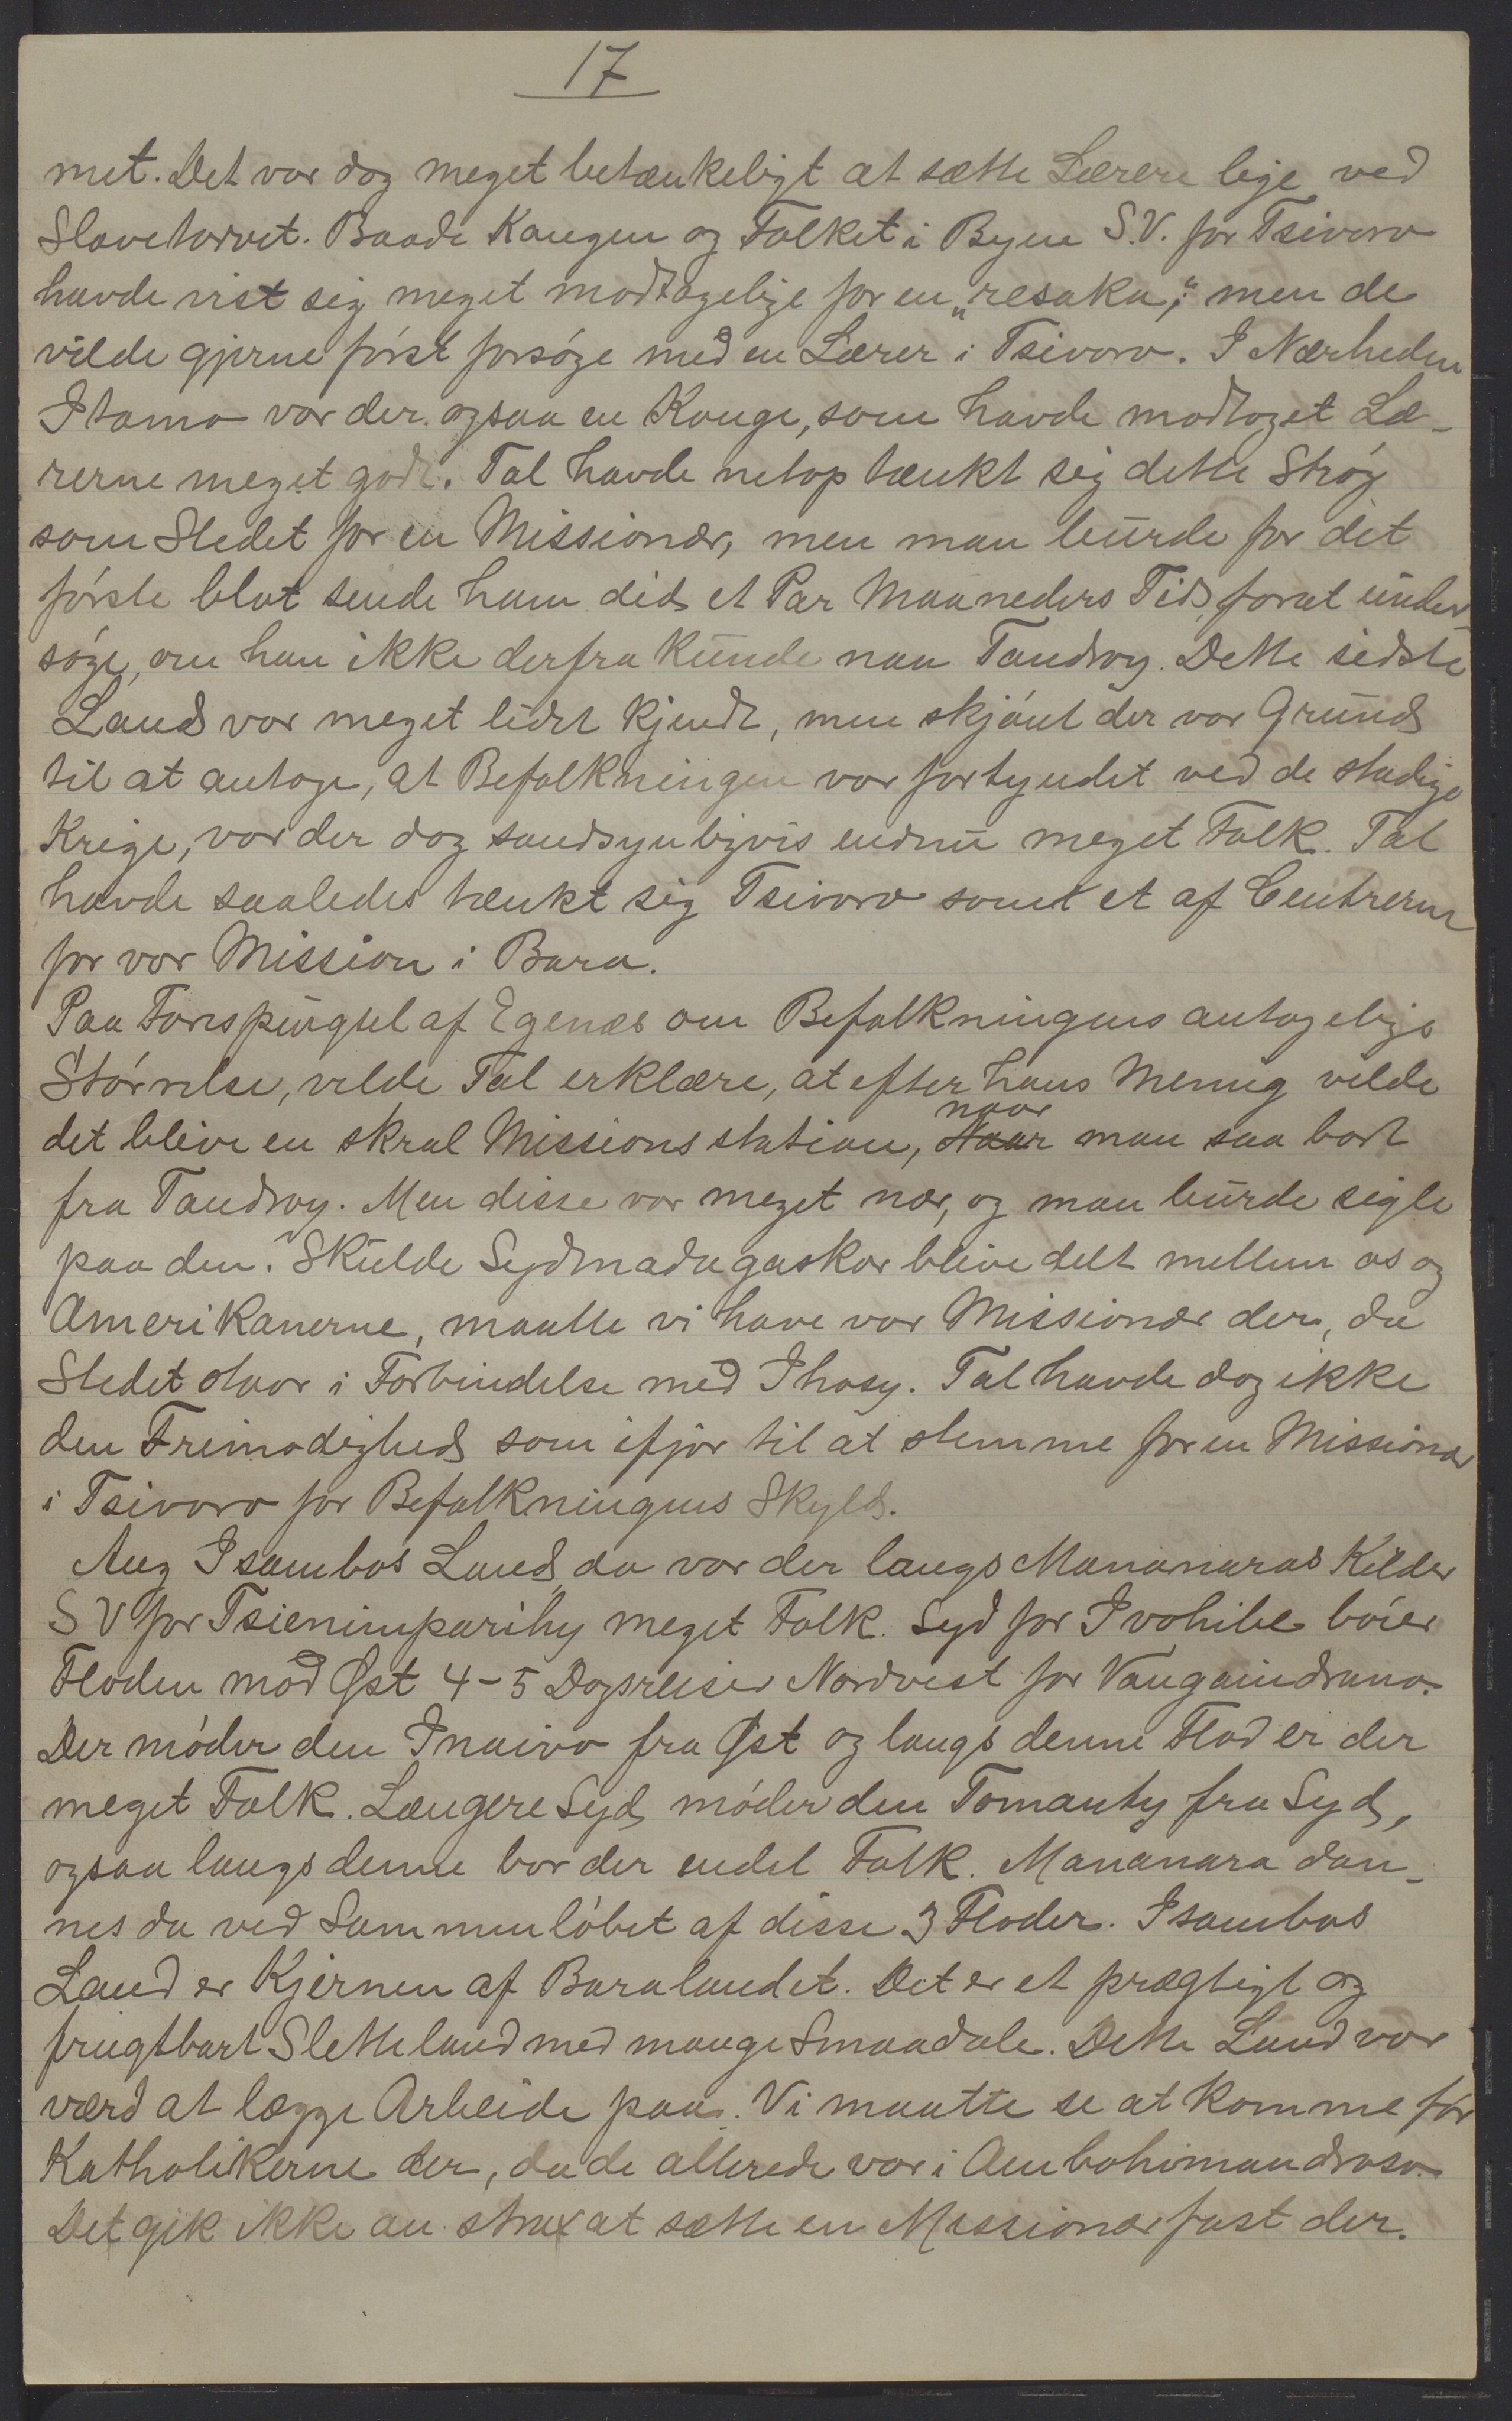 17
met. Det var dog meget betænkeligt at sætte Lærere lige ved
Slavetorvet. Baade Kongen og Folket i Byen S.V. for Tsivoro
havde vist sig meget modtagelige for en „resaka“; men de
vilde gjerne først forsøge med en Lærer i Tsivoro. I Nærheden
Itomo var der ogsaa en Konge, som havde modtaget Læ-
rerne meget godt. Tal havde netop tænkt sig dette Strøg
som Stedet for en Missionær, men man burde for det
første blot sende ham did et Par Maaneders Tid, forat under-
søge, om han ikke derfra kunde naa Tandroy. Dette sidste
Land var meget lidet kjendt, men skjønt der var Grund
til at antage, at Befolkningen var fortyndet ved de stadige
Krige, var der dog sandsynligvis endnu meget Folk. Tal
havde saaledes tænkt sig Tsivoro som et af Centrerne
for vor Mission i Bara.
Paa Forespørgsel af Egenæs om Befolkningens antagelige
Størrelse, vilde Tal erklære, at efter hans Mening vilde
det blive en skral Missionsstation, naar man saa bort
fra Tandroy. Men disse var meget nær, og man burde sigte
paa den. Skulde Sydmadagaskar blive delt mellem os og
Amerikanerne, maatte vi have vor Missionær der, da
Stedet staar i Forbindelse med Ihosy. Tal havde dog ikke
den Frimodighed som ifjor til at stemme for en Missionær
i Tsivoro for Befolkningens Skyld.
Ang Isambos Land, da var der langs Mananaras Kilder
S V for Tsienimparihy meget Folk. Syd for Ivohibe bøier
Floden mod Øst 4-5 Dagsreiser Nordvest for Vangaindrano.
Der møder den Inaivo fra Øst og langs denne Flod er der
meget Folk. Længere Syd møder den Tomanty fra Syd,
ogsaa langs denne bor der endel Folk. Mananara dan-
nes da ved Sammenløbet af disse 3 Floder. Isambos
Land er Kjernen af Baralandet. Det er et prægtigt og
frugtbart Sletteland med mange Smaadale. Dette Land var
værd at lægge Arbeide paa. Vi maatte se at komme før
Katholikerne der, da de allerede var i Ambohimandroso.
Det gik ikke an strax at sætte en Missionær fast der.